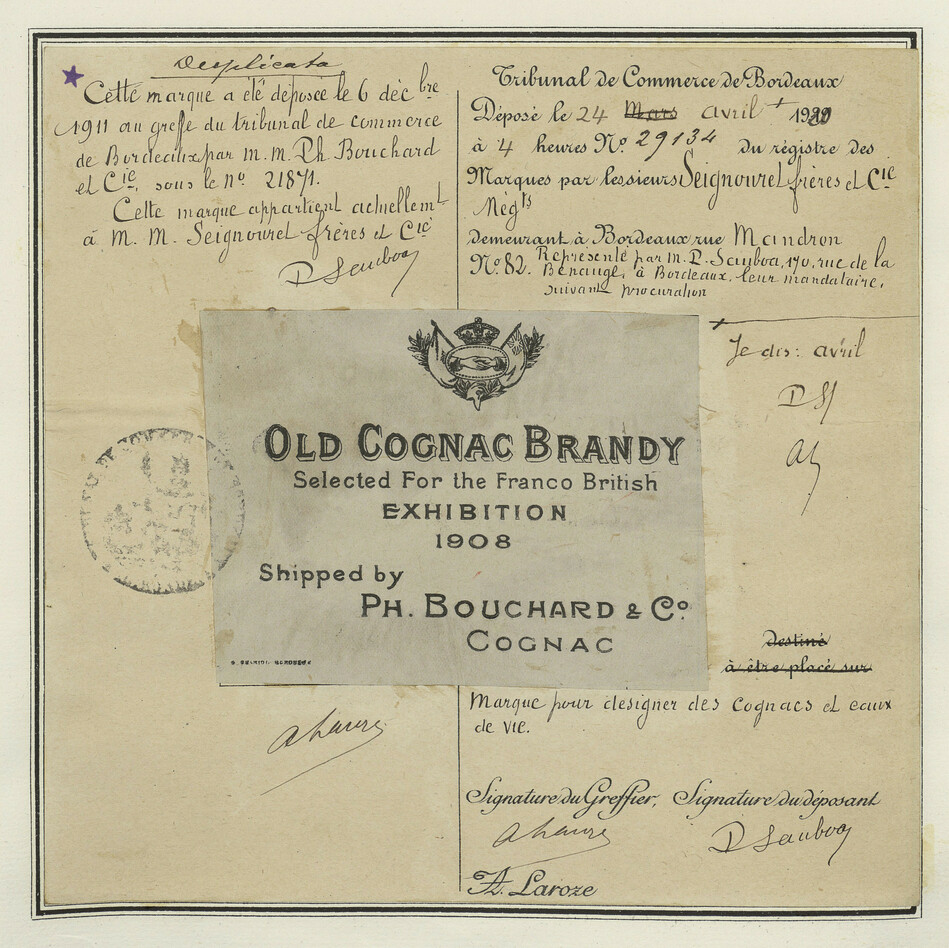 Duplicata
Cette marque a été déposée le 6 décbre
1911 au greffe du tribunal de commerce
de Bordeaux par m. m. Ph. Bouchard
et Cie, sous le no 21871.
Cette marque appartient actuellemt
à M. M. Seignouret frères et Cie
Tribunal de Commerce de Bordeaux
Déposé le 24 Mars avril + 1920
à 4 heures No. 29134 du régistre des
Marques par les sieurs Seignouret frères et Cie
Négts
demeurant à Bordeaux rue Mandron
No. 82. Représenté par m. D. Sauboa, 170, rue de la
Benauge, à Bordeaux. leur mandataire,
suivant procuration
Je dis: avril
OLD COGNAC BRANDY
Selected For the Franco British
EXHIBITION
1908
Shipped by
PH. BOUCHARD & Co.
COGNAC
destiné
à être placé sur
Marque pour désigner des cognacs et eaux
de vie.
Signature du Greffier, Signature du déposant
D Sauboa
A. Laroze